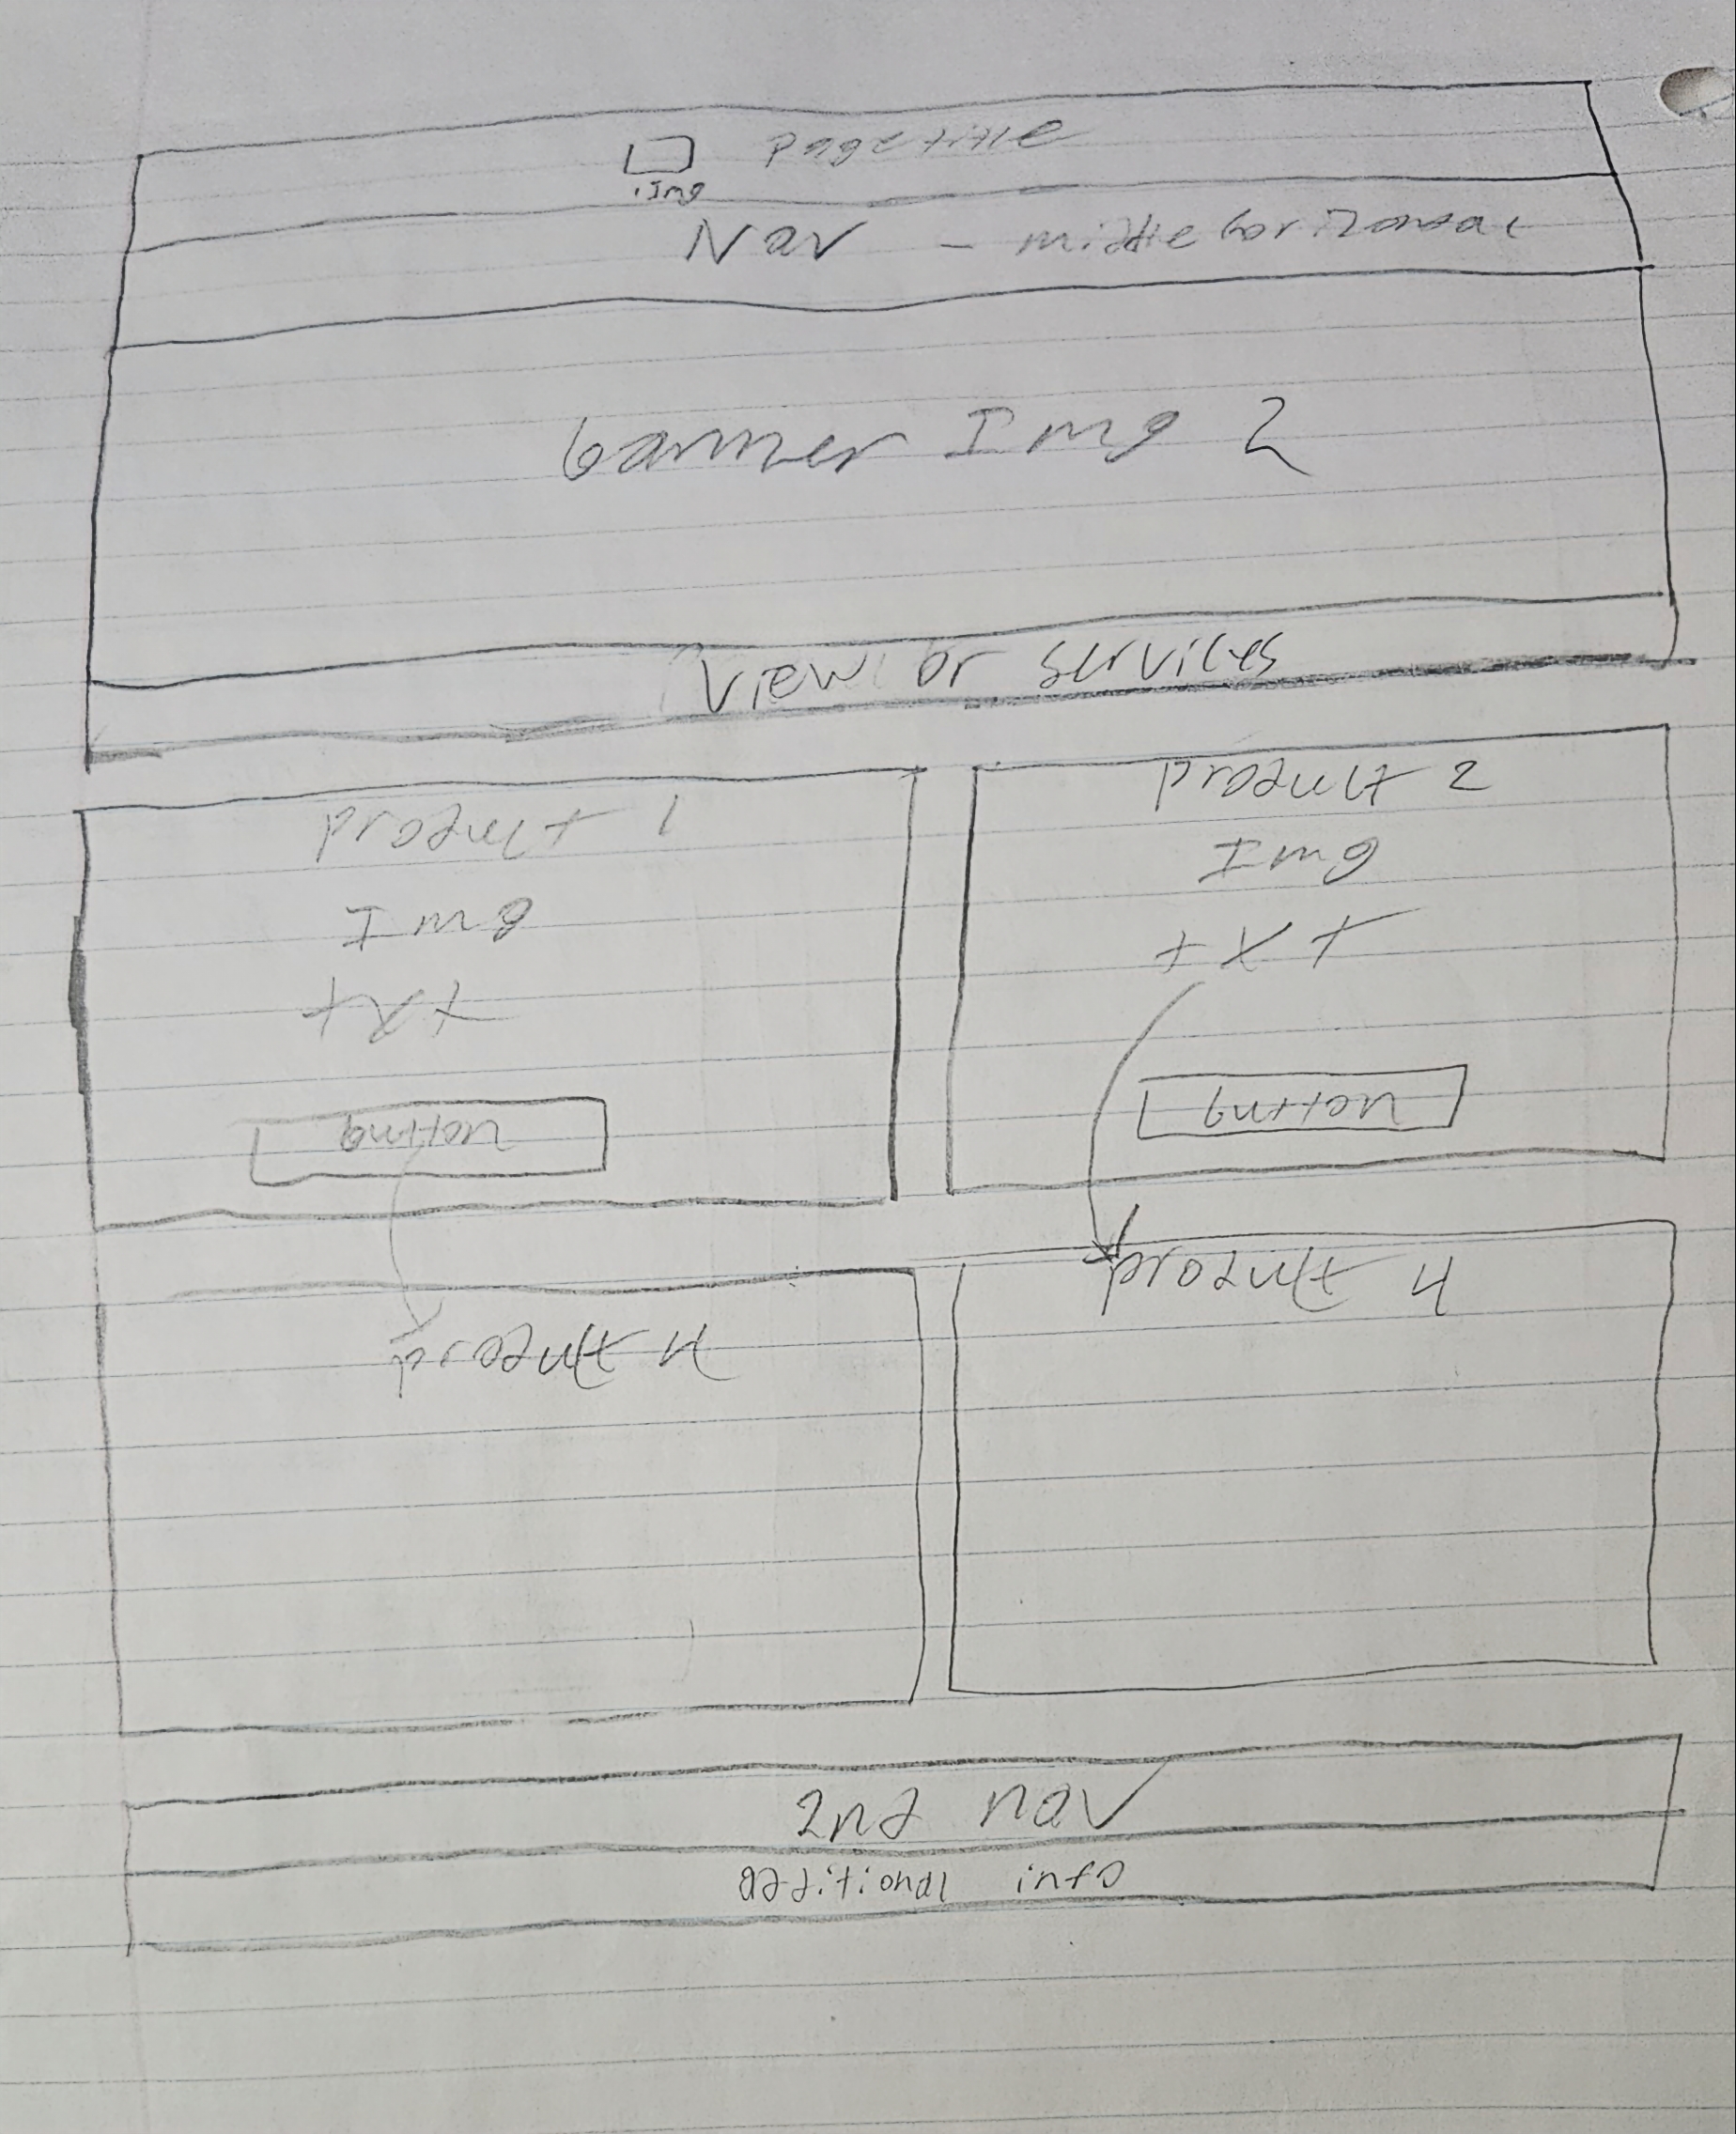 Page title
.Img
Nav - middle horizontal
banner Img 2
view or services
product 1
Img
txt
button
product 2
Img
txt
button
product 4
product 4
2nd nav
additional info